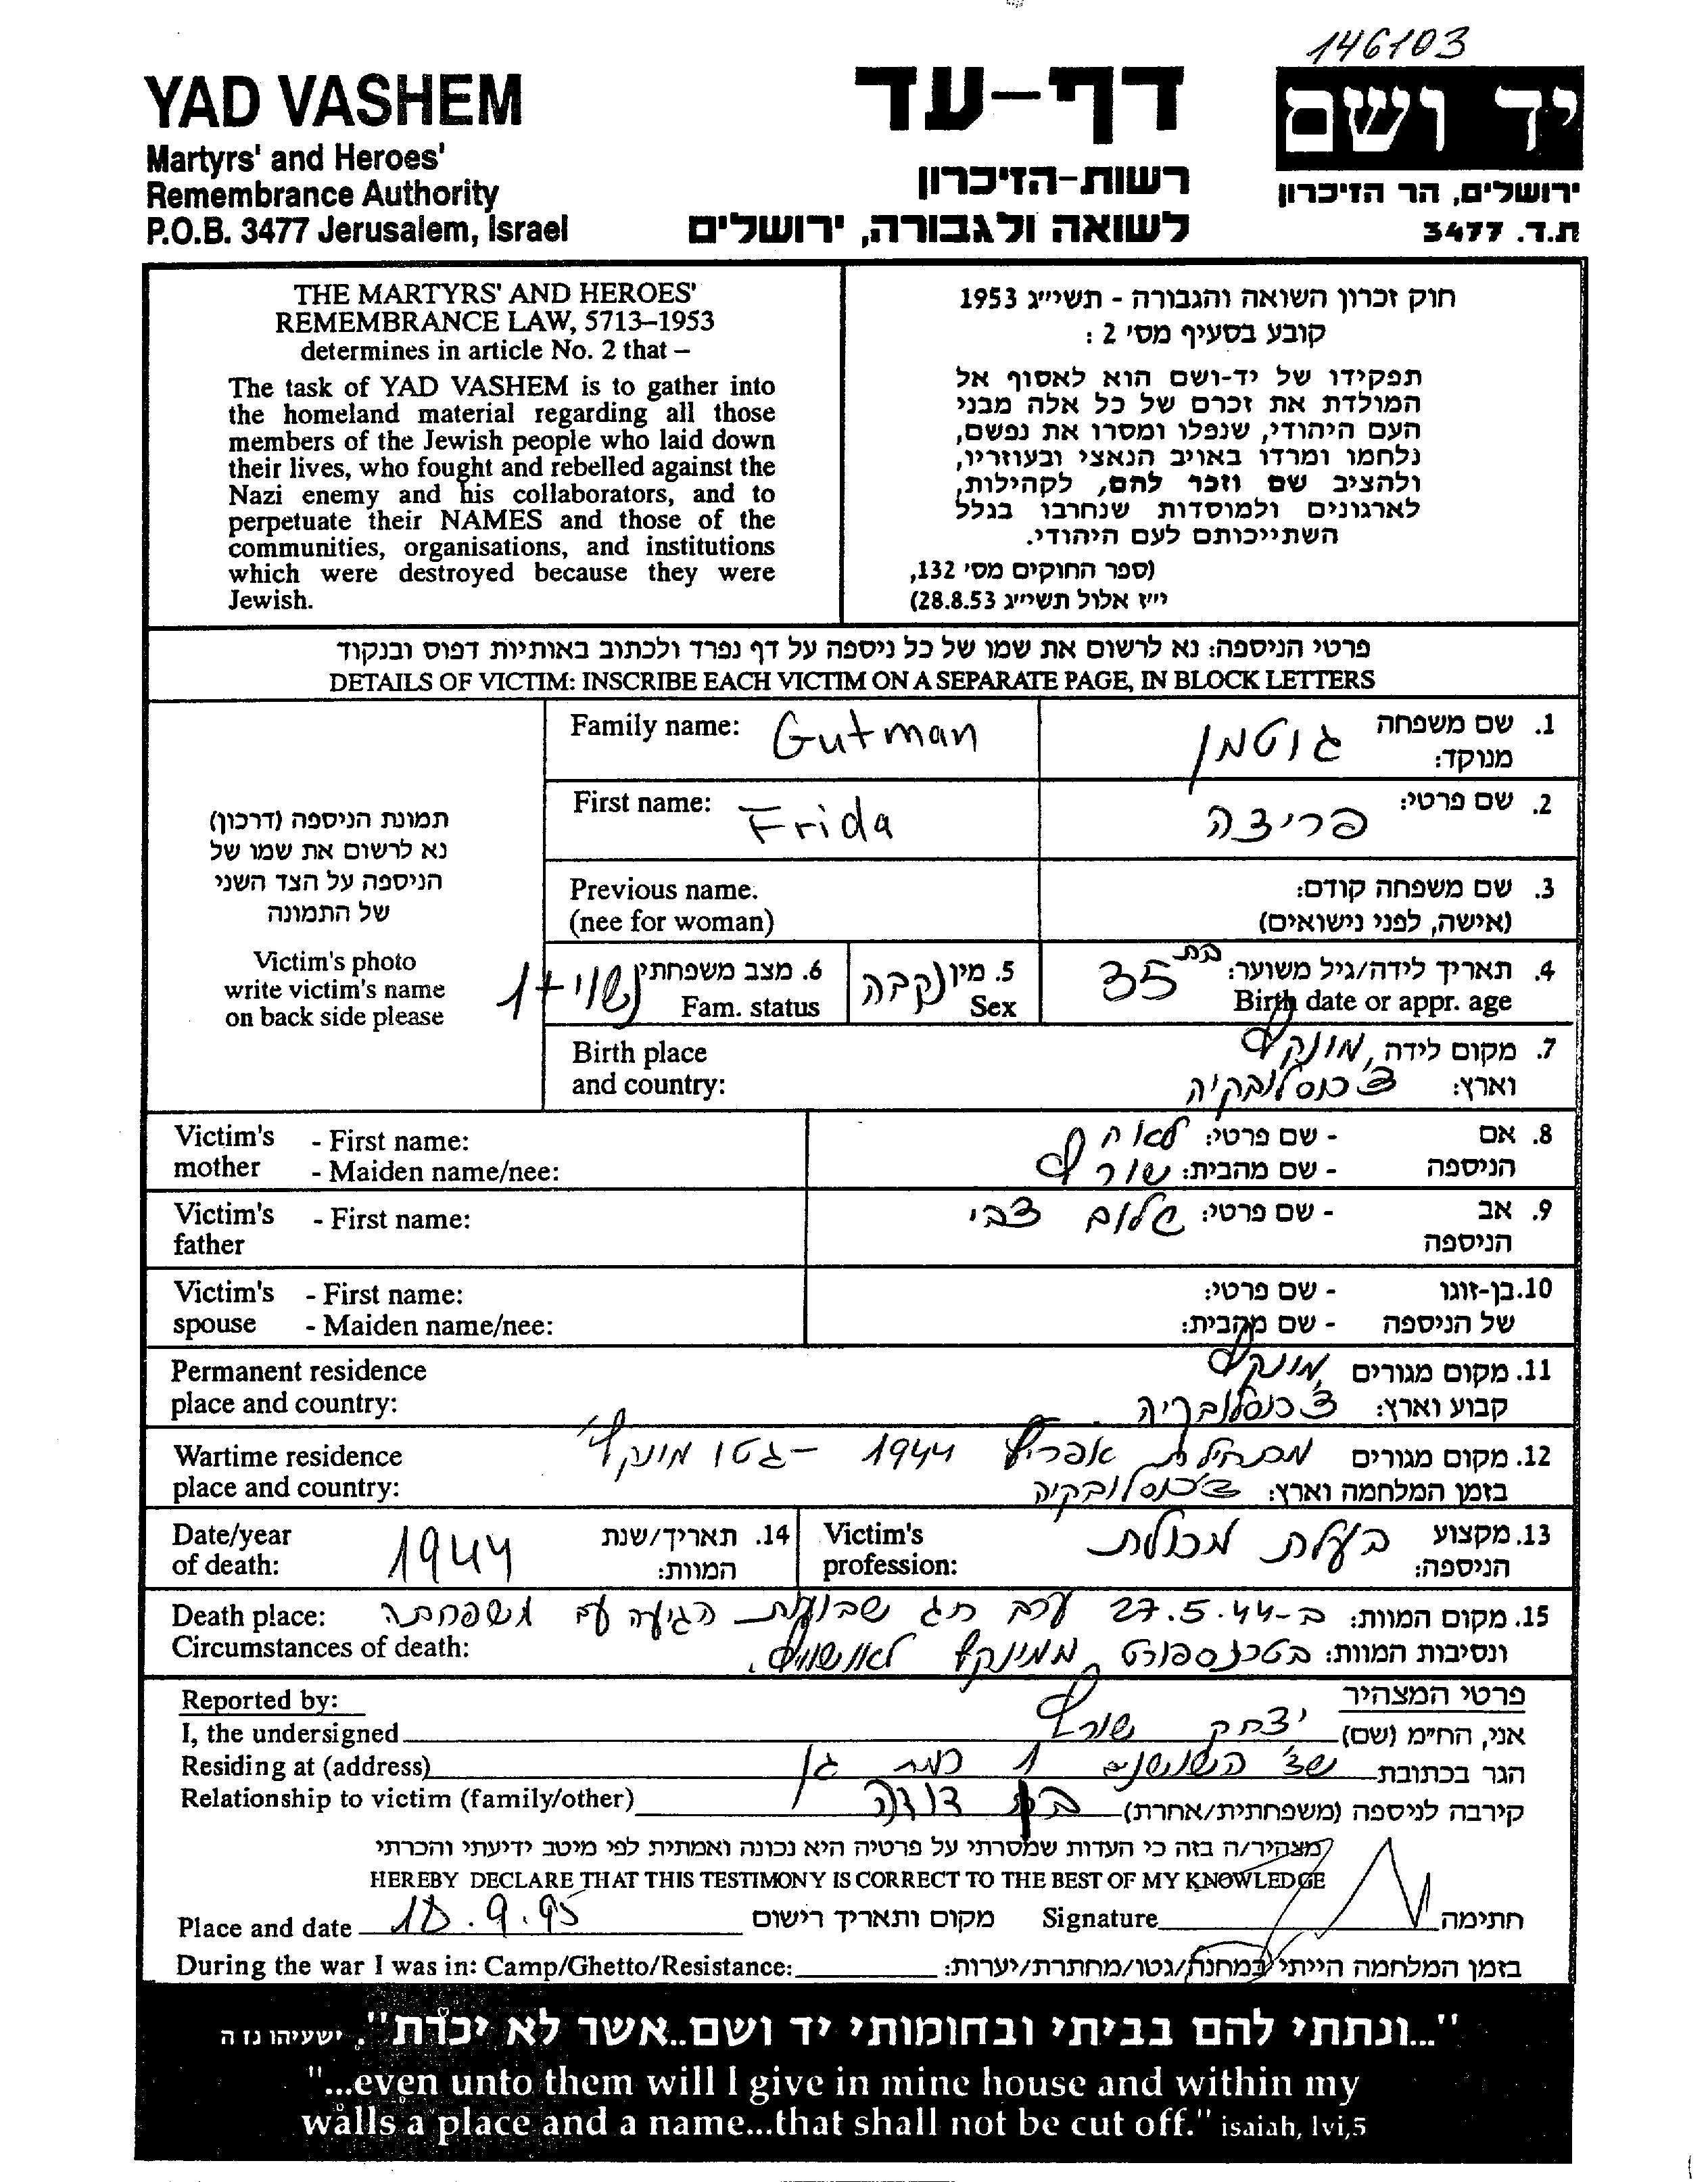 146103
YAD VASHEM
Martyrs' and Heroes'
Remembrance Authority
P.O.B. 3477 Jerusalem, Israel
דף-עד
רשות-הזיכרון
לשואה ולגבורה, ירושלים
יד ושם
ירושלים, הר הזיכרון
ת.ד. 3477
THE MARTYRS' AND HEROES'
REMEMBRANCE LAW, 5713–1953
determines in article No. 2 that –
The task of YAD VASHEM is to gather into
the homeland material regarding all those
members of the Jewish people who laid down
their lives, who fought and rebelled against the
Nazi enemy and his collaborators, and to
perpetuate their NAMES and those of the
communities, organisations, and institutions
which were destroyed because they were
Jewish.
חוק זכרון השואה והגבורה - תשי״ג 1953
קובע בסעיף מס׳ 2 :
תפקידו של יד-ושם הוא לאסוף אל
המולדת את זכרם של כל אלה מבני
העם היהודי, שנפלו ומסרו את נפשם,
נלחמו ומרדו באויב הנאצי ובעוזריו,
ולהציב שם וזכר להם, לקהילות,
לארגונים ולמוסדות שנחרבו בגלל
השתייכותם לעם היהודי.
(ספר החוקים מס׳ 132,
י״ז אלול תשי״ג 28.8.53)
פרטי הניספה: נא לרשום את שמו של כל ניספה על דף נפרד ולכתוב באותיות דפוס ובנקוד
DETAILS OF VICTIM: INSCRIBE EACH VICTIM ON A SEPARATE PAGE, IN BLOCK LETTERS
תמונת הניספה (דרכון)
נא לרשום את שמו של
הניספה על הצד השני
של התמונה
Victim's photo
write victim's name
on back side please
Family name: Gutman
1. שם משפחה גוטמן
מנוקד:
First name: Frida
2. שם פרטי: פרידה
Previous name.
(nee for woman)
3. שם משפחה קודם:
(אישה, לפני נישואים)
4. תאריך לידה/גיל משוער: בת 35
Birth date or appr. age
5. מין נקבה
Sex
6. מצב משפחתי נשוי + 1
Fam. status
Birth place
and country:
7. מקום לידה מונקץ,
וארץ: צ'כוסלובקיה
Victim's mother
- First name:
- Maiden name/nee:
8. אם הניספה
- שם פרטי: לאה
- שם מהבית: שורץ
Victim's father
- First name:
9. אב הניספה
- שם פרטי: שלום צבי
Victim's spouse
- First name:
- Maiden name/nee:
10. בן-זוגו של הניספה
- שם פרטי:
- שם מהבית:
Permanent residence
place and country:
11. מקום מגורים מונקץ,
קבוע וארץ: צ'כוסלובקיה
Wartime residence
place and country:
12. מקום מגורים מתחילת אפריל 1944 - גטו מונקץ
בזמן המלחמה וארץ: צ'כוסלובקיה
Date/year
of death:
14. תאריך/שנת
המוות: 1944
Victim's
profession:
13. מקצוע בעלת מכולת
הניספה:
Death place:
Circumstances of death:
15. מקום המוות: ב-27.5.44 ערב חג שבועות הגיעה עם משפחתה
ונסיבות המוות: בטרנספורט ממונקץ לאושוויץ.
Reported by:
פרטי המצהיר
I, the undersigned
אני, הח״מ (שם) יצחק שורץ
Residing at (address)
הגר בכתובת שד' השושנים 1 רמת גן
Relationship to victim (family/other)
קירבה לניספה (משפחתית/אחרת) בן דודה
מצהיר/ה בזה כי העדות שמסרתי על פרטיה היא נכונה ואמתית לפי מיטב ידיעתי והכרתי
HEREBY DECLARE THAT THIS TESTIMONY IS CORRECT TO THE BEST OF MY KNOWLEDGE
Place and date 18.9.95 מקום ותאריך רישום
Signature חתימה
During the war I was in: Camp/Ghetto/Resistance:
בזמן המלחמה הייתי במחנה/גטו/מחתרת/יערות:
"...ונתתי להם בביתי ובחומותי יד ושם..אשר לא יכרת". ישעיהו נז ה
"...even unto them will I give in mine house and within my
walls a place and a name...that shall not be cut off." isaiah, lvi,5